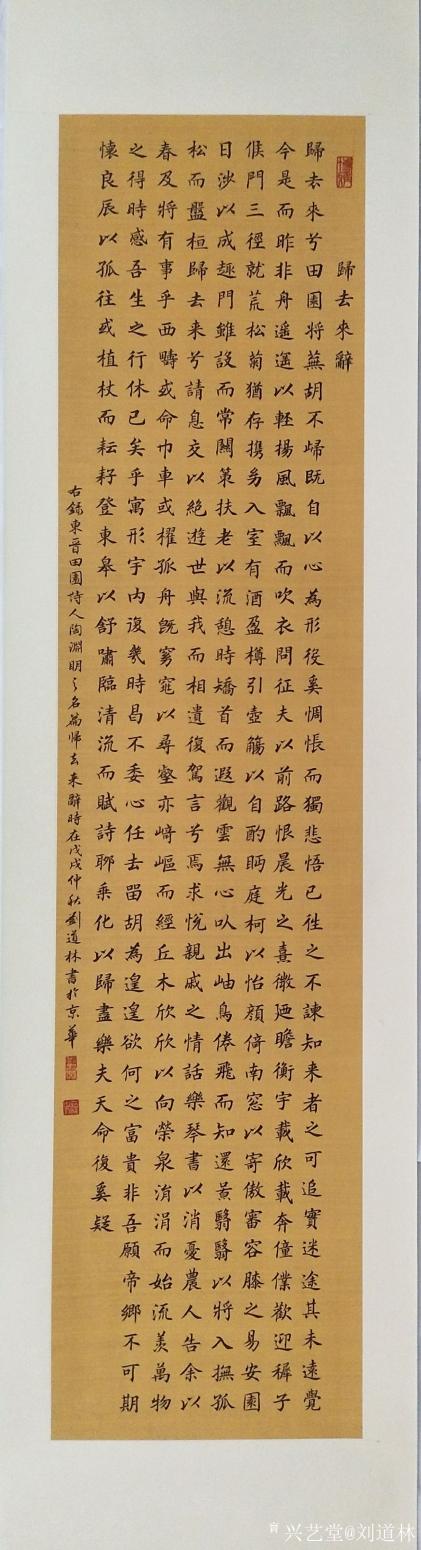 歸去來辭
歸去來兮田園將蕪胡不歸既自以心為形役奚惆悵而獨悲悟已往之不諫知来者之可追實迷途其未遠覺
今是而昨非舟遥遥以輕揚風飄飄而吹衣問征夫以前路恨晨光之熹微廼瞻衡宇載欣載奔僮僕歡迎稺子
候門三徑就荒松菊猶存携幼入室有酒盈樽引壺觴以自酌眄庭柯以怡顔倚南窓以寄傲審容膝之易安園
日涉以成趣門雖設而常關策扶老以流憩時矯首而遐觀雲無心以出岫鳥倦飛而知還景翳翳以將入撫孤
松而盤桓歸去来兮請息交以絶遊世與我而相遺復駕言兮焉求悦親戚之情話樂琴書以消憂農人告余以
春及將有事乎西疇或命巾車或櫂孤舟既窈窕以尋壑亦崎嶇而經丘木欣欣以向榮泉涓涓而始流羡萬物
之得時感吾生之行休已矣乎寓形宇内復幾時曷不委心任去留胡為遑遑欲何之富貴非吾願帝鄉不可期
懷良辰以孤往或植杖而耘耔登東皋以舒嘯臨清流而賦詩聊乘化以歸盡樂夫天命復奚疑
右録東晉田園詩人陶淵明之名篇歸去来辭時在戊戌仲秋劉道林書於京華
兴艺堂@刘道林